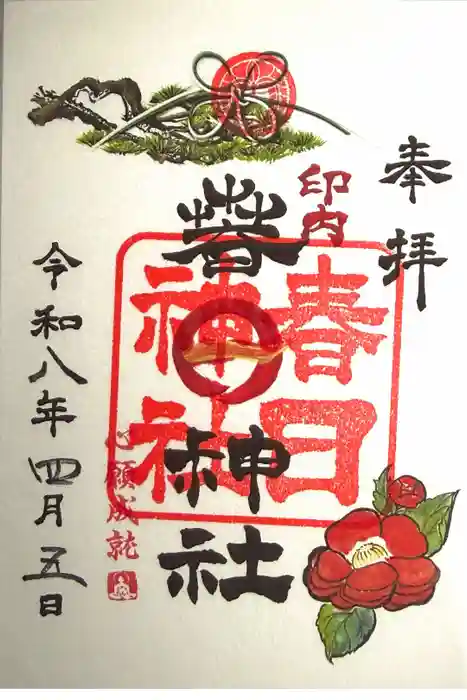 奉拝
印内
春日神社
春日
神社
心願成就
令和八年四月五日